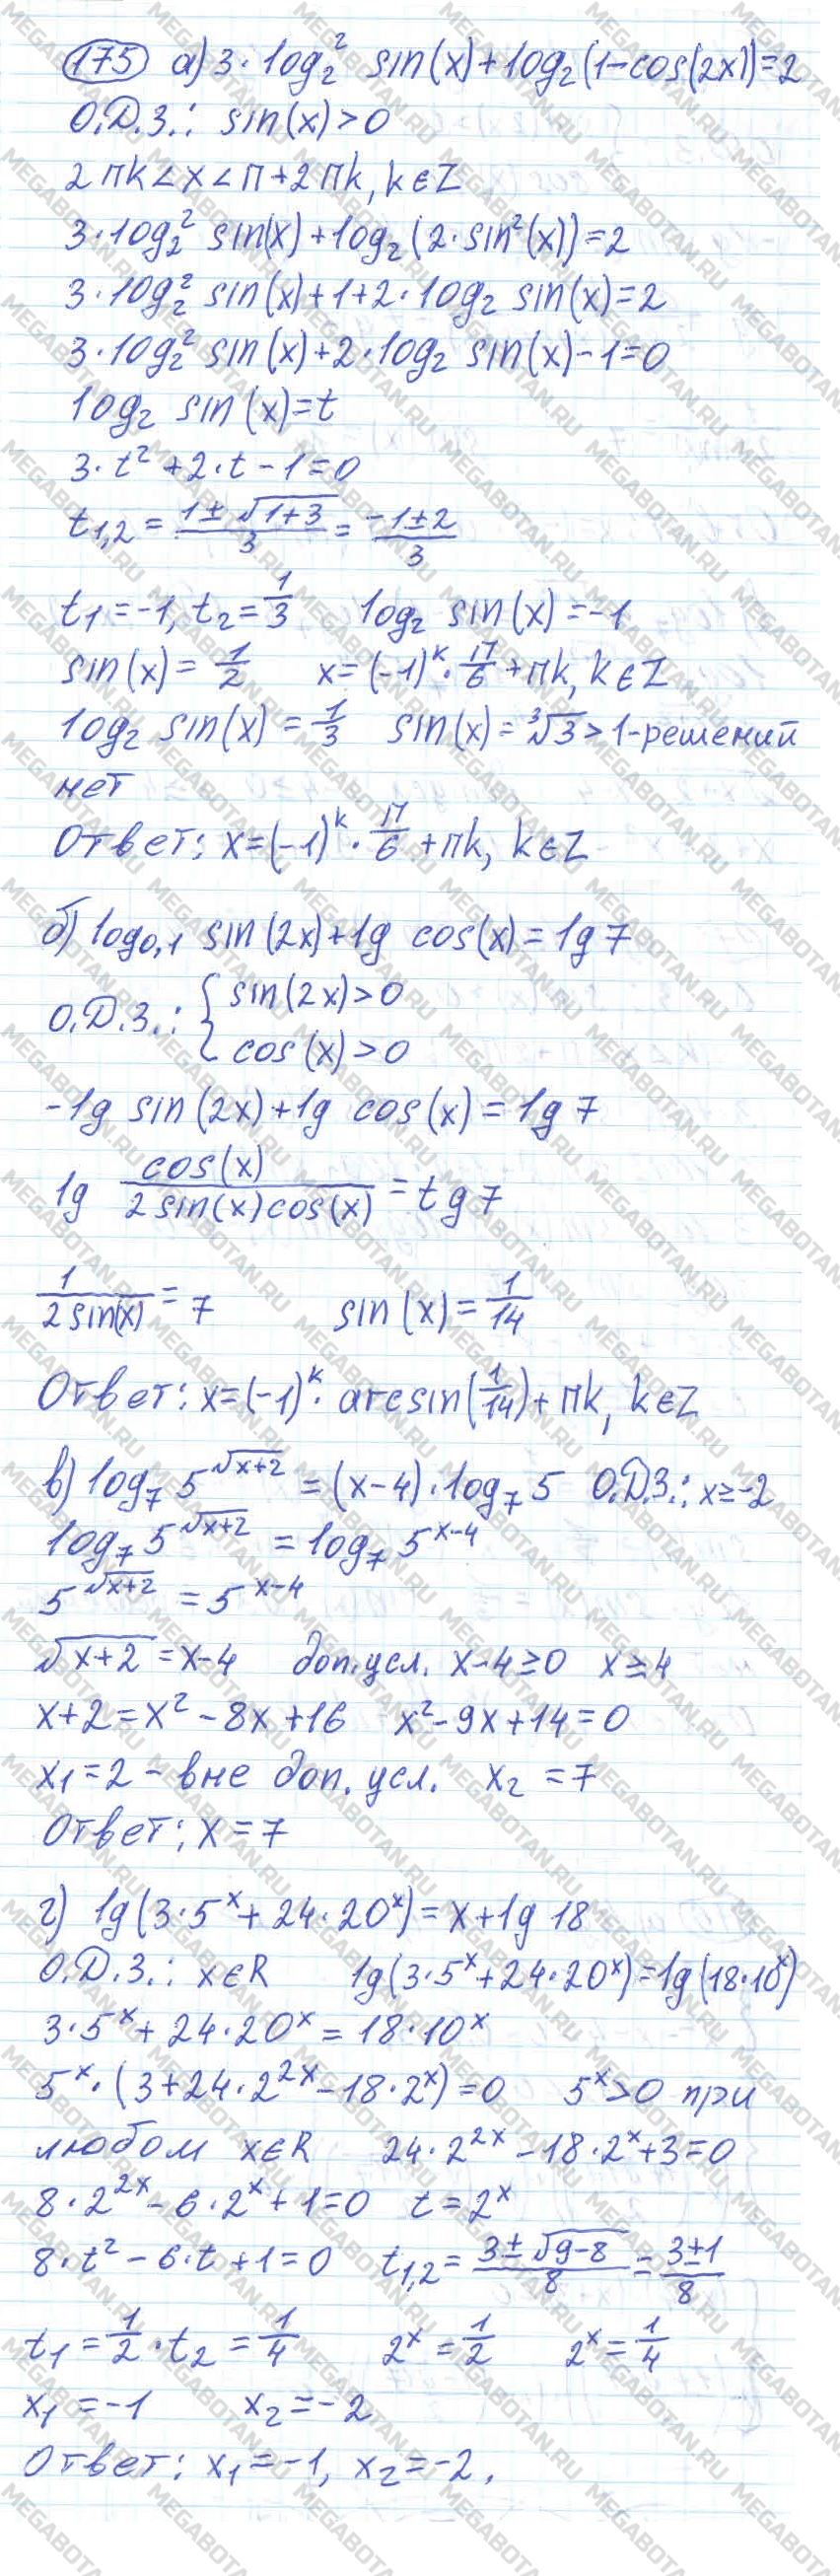 175 а) 3·log₂² sin(x)+log₂(1-cos(2x))=2
О.Д.З.: sin(x)>0
2πk<x<π+2πk, k∈Z
3·log₂² sin(x)+log₂(2·sin²(x))=2
3·log₂² sin(x)+1+2·log₂ sin(x)=2
3·log₂² sin(x)+2·log₂ sin(x)-1=0
log₂ sin(x)=t
3·t²+2·t-1=0
t₁,₂=(1±√(1+3))/3=(-1±2)/3
t₁=-1, t₂=1/3 log₂ sin(x)=-1
sin(x)=1/2 x=(-1)ᵏ·π/6+πk, k∈Z
log₂ sin(x)=1/3 sin(x)=³√3>1-решений
нет
Ответ: x=(-1)ᵏ·π/6+πk, k∈Z
б) log₀,₁ sin(2x)+lg cos(x)=lg7
О.Д.З.: { sin(2x)>0
cos(x)>0
-lg sin(2x)+lg cos(x)=lg7
lg cos(x)/(2sin(x)cos(x))=tg7
1/(2sin(x))=7 sin(x)=1/14
Ответ: x=(-1)ᵏ·arcsin(1/14)+πk, k∈Z
в) log₇5^√(x+2)=(x-4)·log₇5 О.Д.З.: x≥-2
log₇5^√(x+2)=log₇5^(x-4)
5^√(x+2)=5^(x-4)
√(x+2)=x-4 доп.усл. x-4≥0 x≥4
x+2=x²-8x+16 x²-9x+14=0
x₁=2-вне доп. усл. x₂=7
Ответ: x=7
г) lg(3·5ˣ+24·20ˣ)=x+lg18
О.Д.З.: x∈R lg(3·5ˣ+24·20ˣ)=lg(18·10ˣ)
3·5ˣ+24·20ˣ=18·10ˣ
5ˣ·(3+24·2²ˣ-18·2ˣ)=0 5ˣ>0 при
любом x∈R 24·2²ˣ-18·2ˣ+3=0
8·2²ˣ-6·2ˣ+1=0 t=2ˣ
8·t²-6·t+1=0 t₁,₂=(3±√(9-8))/8=(3±1)/8
t₁=1/2·t₂=1/4 2ˣ=1/2 2ˣ=1/4
x₁=-1 x₂=-2
Ответ: x₁=-1, x₂=-2.
MEGABOTAN.RU